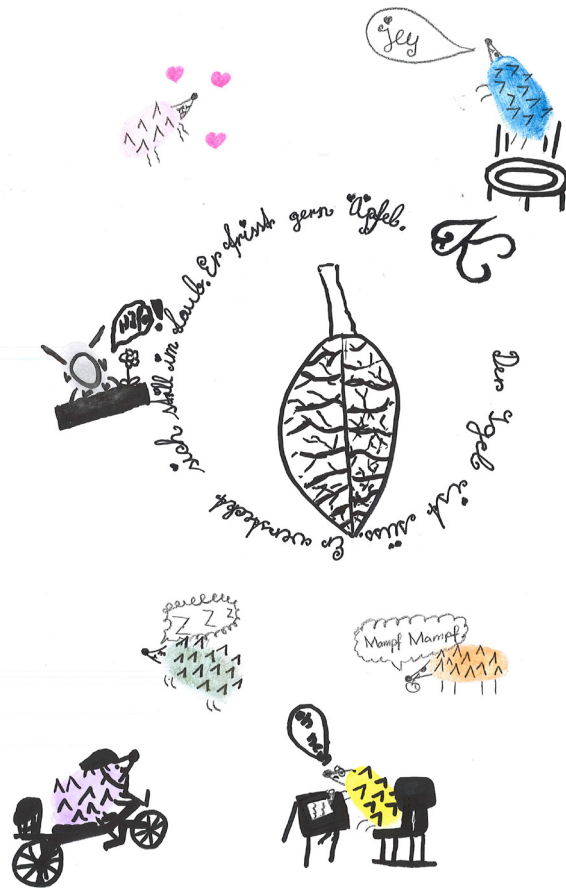 jey
Der Igel ist süss. Er versteckt sich still im Laub. Er frisst gern Äpfel.
Z Z Z
Mampf Mampf